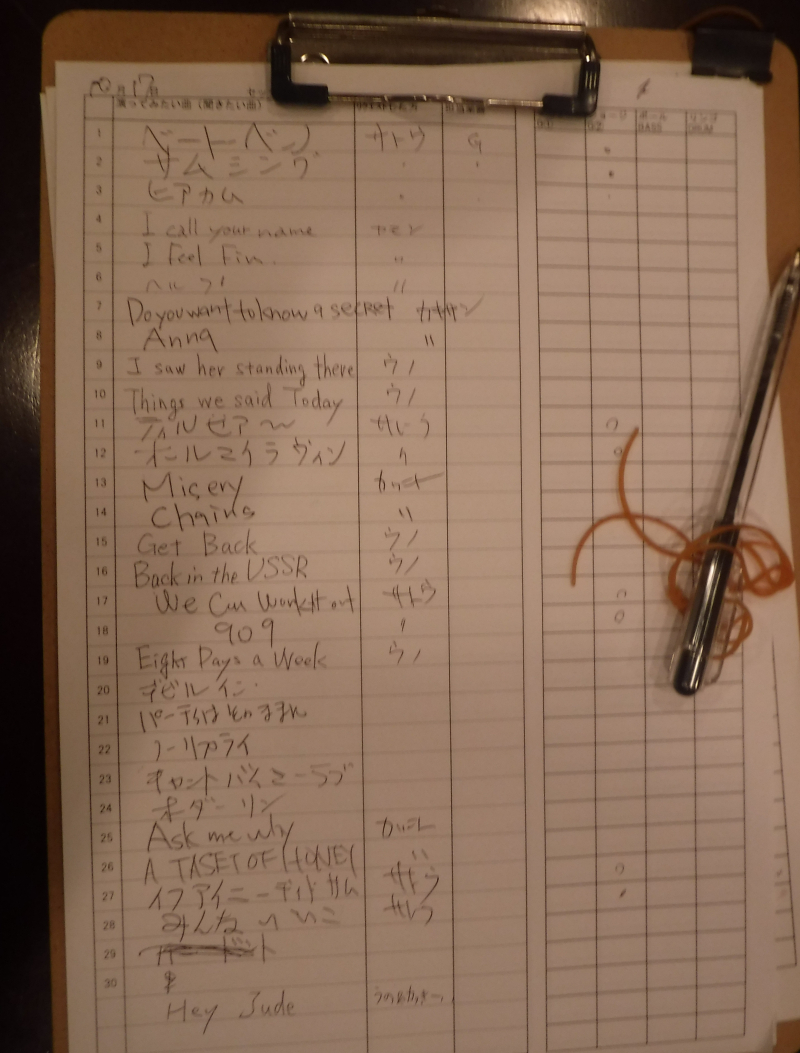 10月17日
演ってみたい曲（聞きたい曲）
BASS DRUM
1 ベートーベン サトウ G
2 サムシング 〃
3 ヒアカム 〃
4 I call your name
5 I Feel Fin. 〃
6 ヘルプ 〃
7 Do you want to know a secret
8 Anna 〃
9 I saw her standing there ウノ
10 Things we said Today ウノ
11 ティルゼアー サトウ
12 オールマイラヴィン 〃
13 Misery
14 Chains 〃
15 Get Back ウノ
16 Back in the USSR ウノ
17 We Can Work It out サトウ
18 909 〃
19 Eight Days a Week ウノ
20 デビルイン
21 パーティはそのままに
22 ノーリプライ
23 キャントバイミーラブ
24 オダーリン
25 Ask me why
26 A TASET OF HONEY 〃
27 イフアイニーデッド サム サトウ
28 みんな いいこ サトウ
29
30
Hey Jude